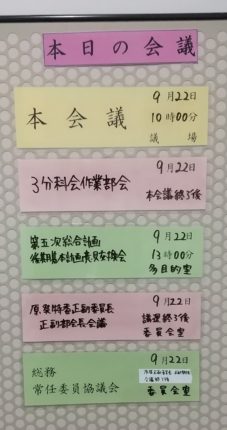 本日の会議
本会議
9月22日
10時00分
議場
3分科会作業部会
9月22日
本会議終了後
第五次総合計画
後期基本計画意見交換会
9月22日
13時00分
多目的室
正副部会長会議
9月22日
議運終了後
委員会室
総務
常任委員協議会
9月22日
委員会室